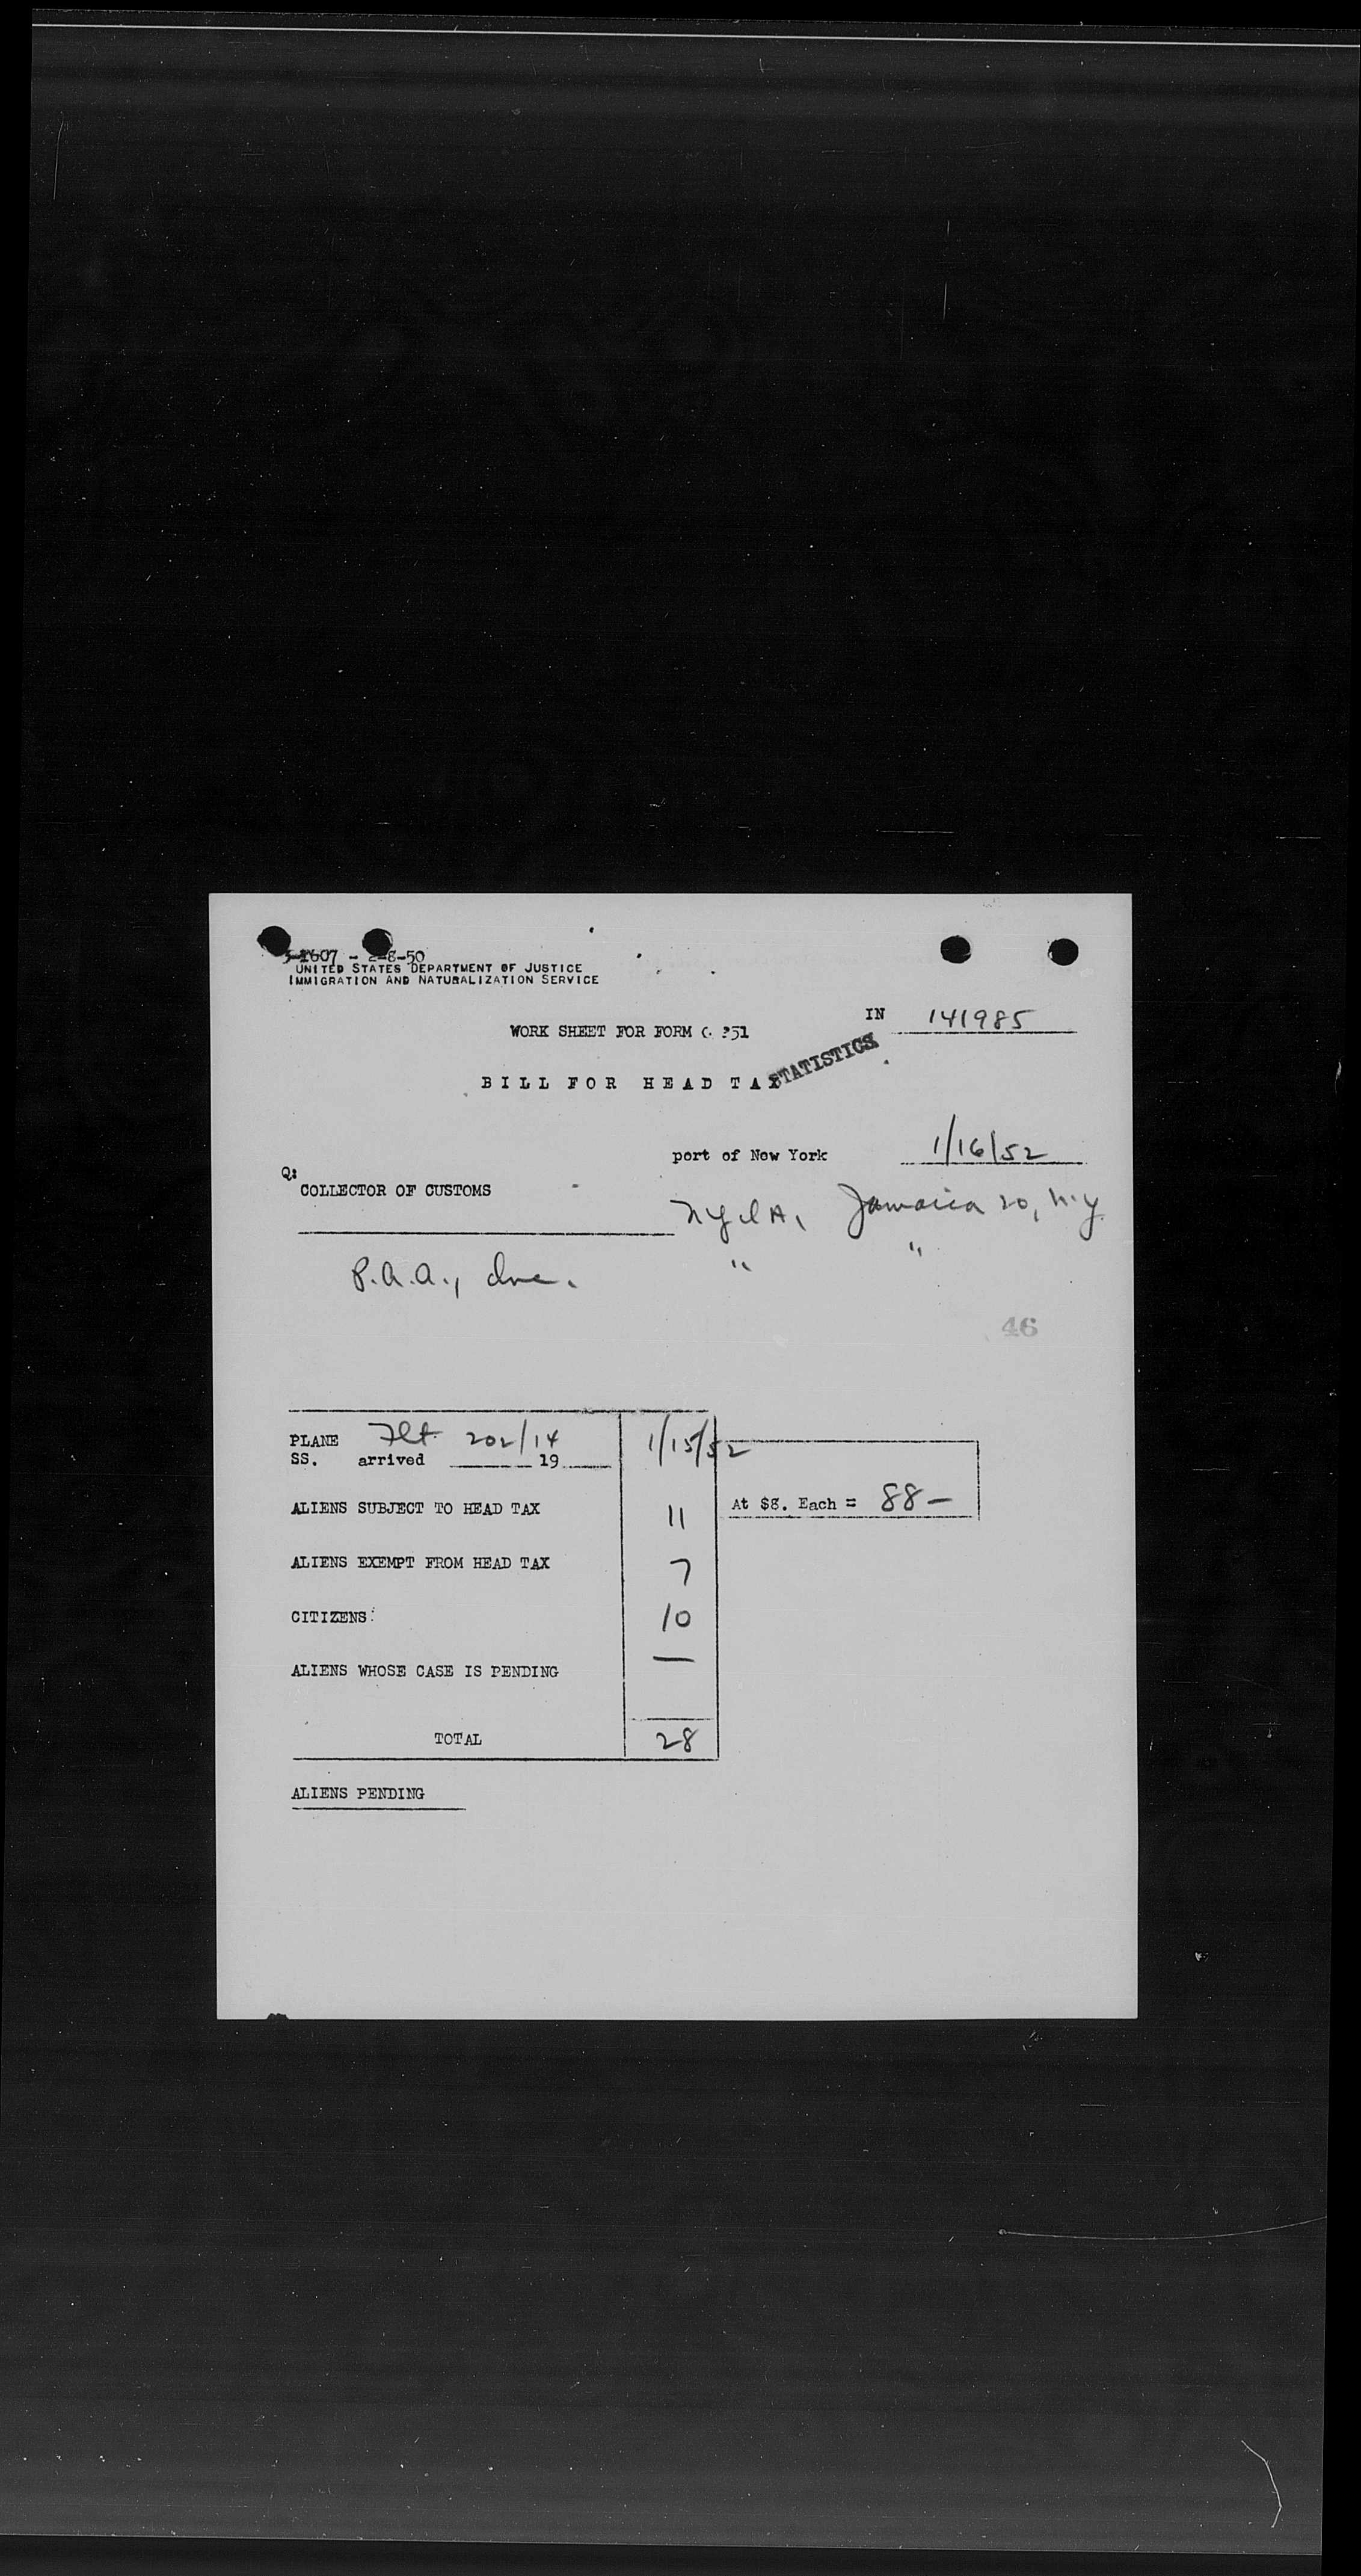 - 2-8-50
UNITED STATES DEPARTMENT OF JUSTICE
IMMIGRATION AND NATURALIZATION SERVICE
IN 141985
WORK SHEET FOR FORM 351
STATISTICS
BILL FOR HEAD TAX
port of New York 1/16/52
Q:
COLLECTOR OF CUSTOMS
NYIA, Jamaica 20, N.Y.
P.A.A., Inc. " "
46
PLANE Flt. 202/14 1/15/52
SS. arrived 19
ALIENS SUBJECT TO HEAD TAX 11 At $8. Each = 88-
ALIENS EXEMPT FROM HEAD TAX 7
CITIZENS: 10
ALIENS WHOSE CASE IS PENDING —
TOTAL 28
ALIENS PENDING